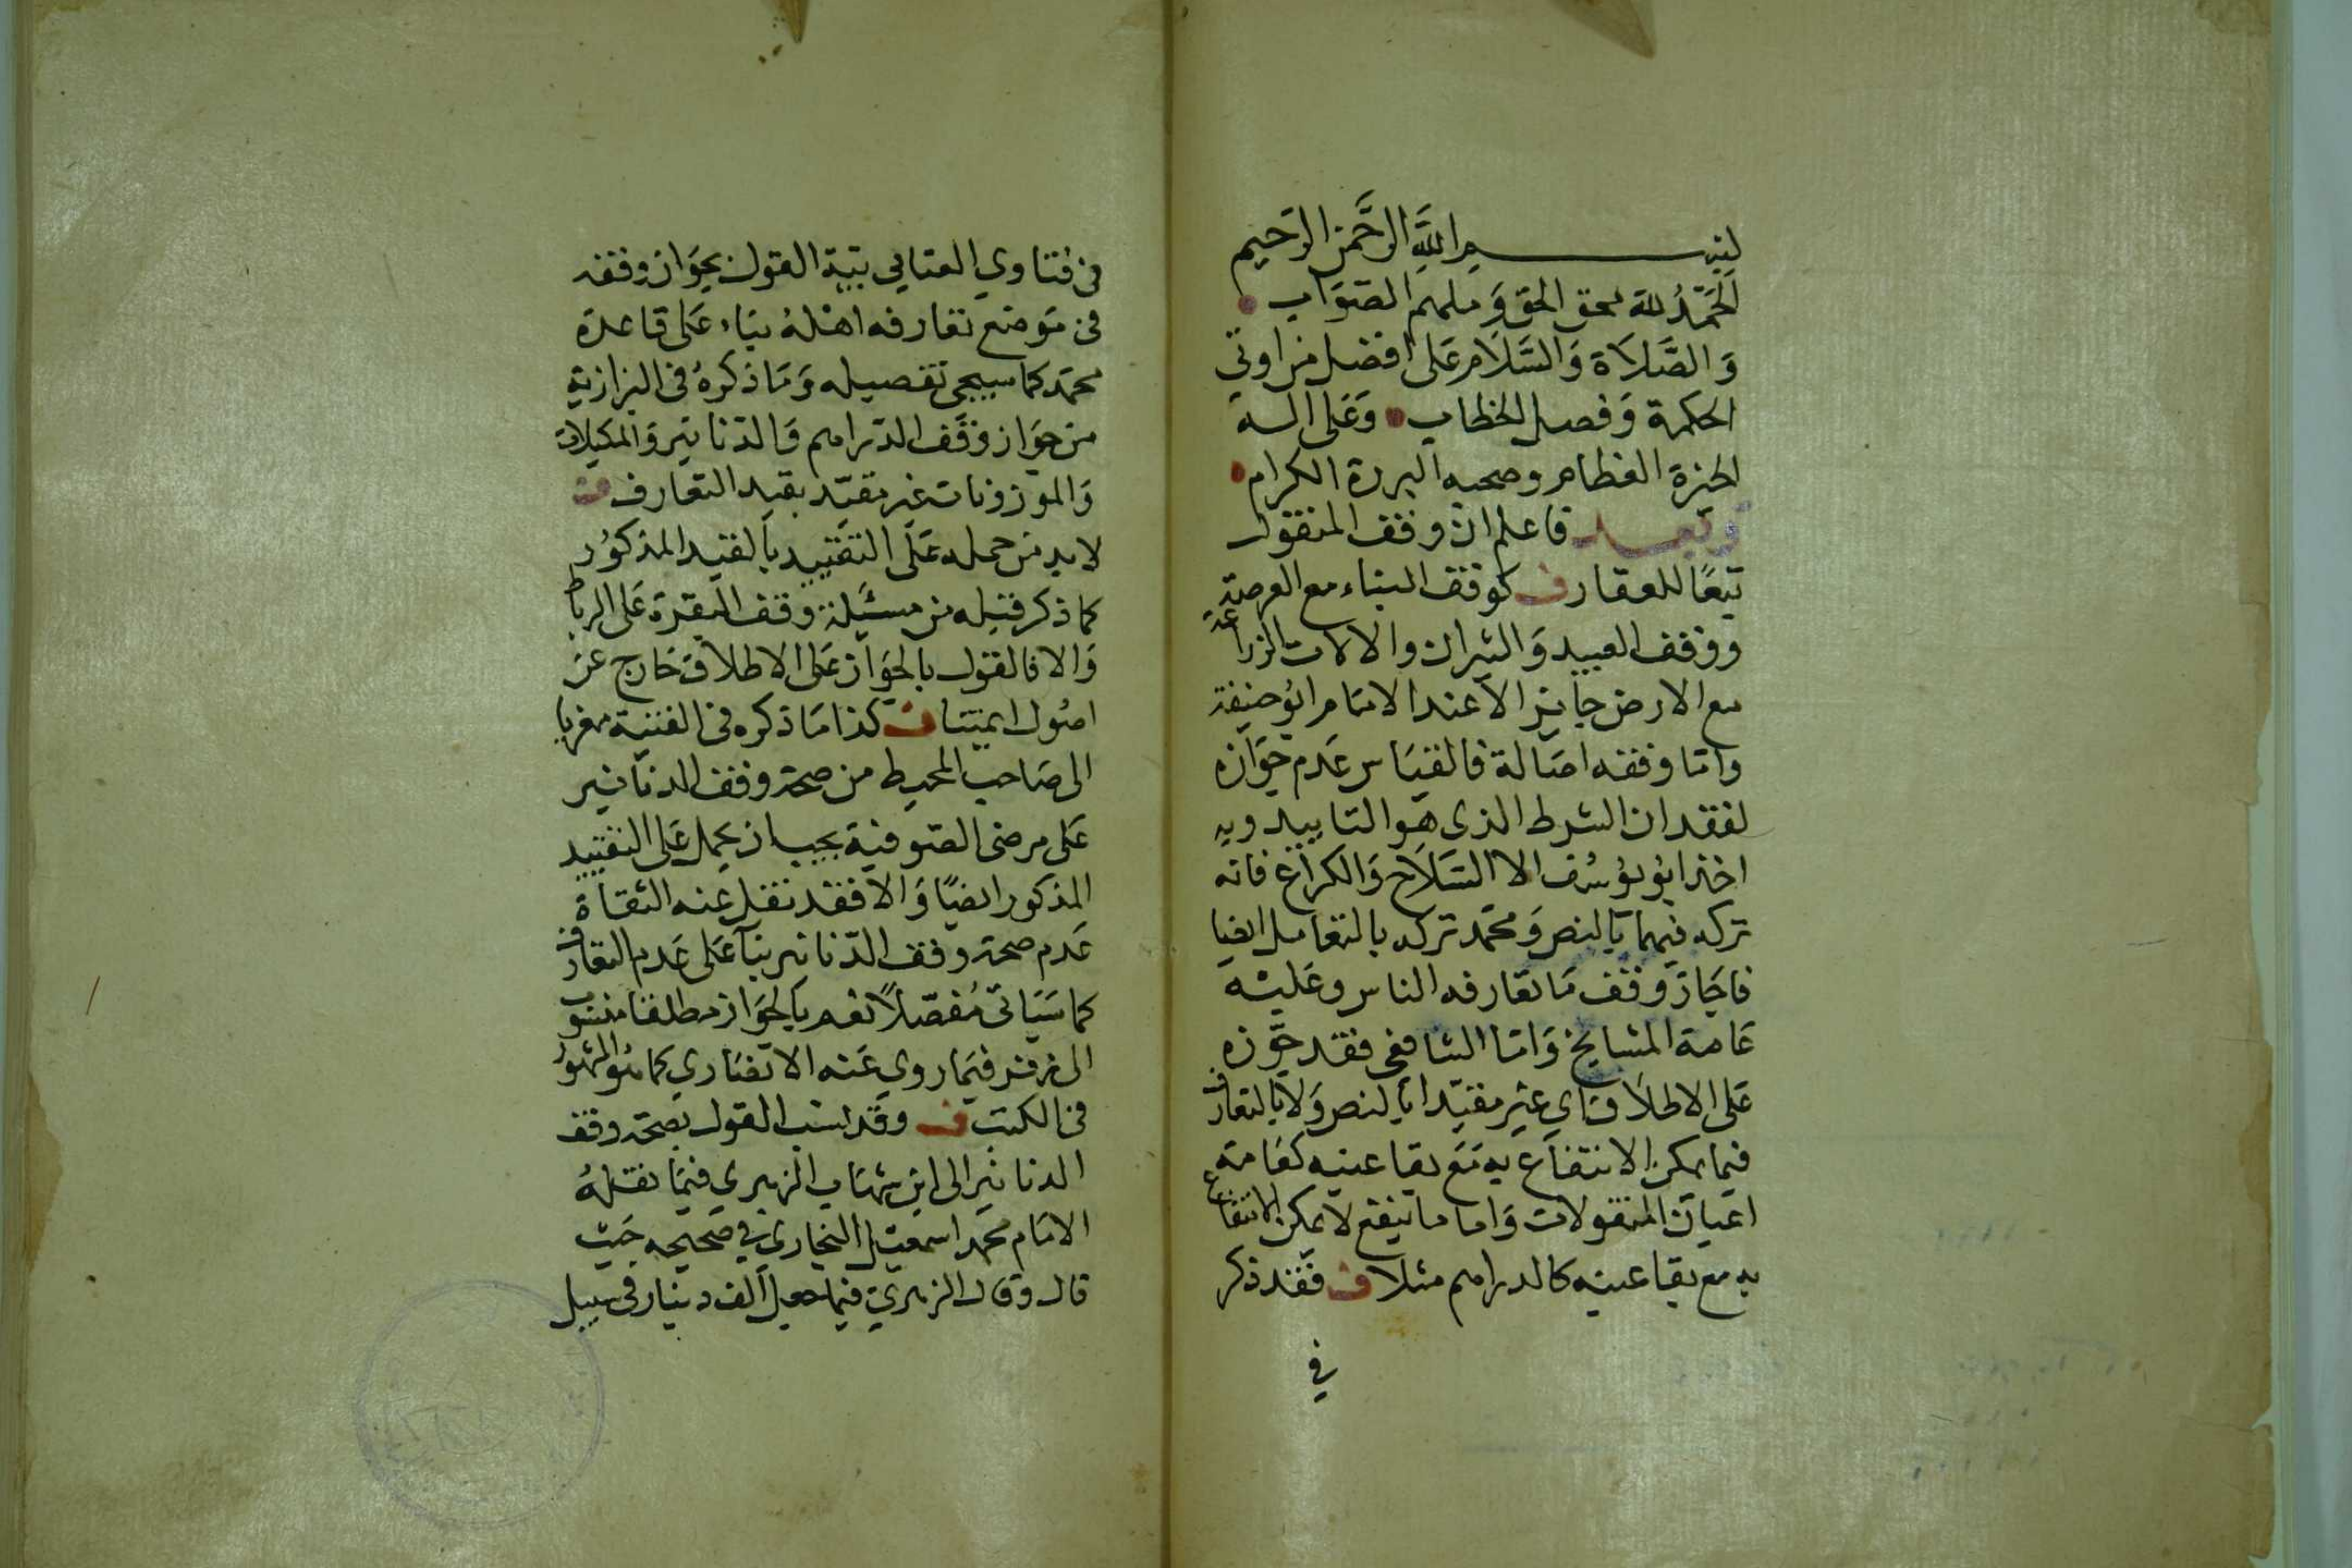 بسم الله الرَّحمن الرَّحيم
اَلحَمْدُ لله محق الحق وَملهم الصَّوَاب
وَالصَّلاَة وَالسَّلاَم عَلى افضل من اوتي
الحكمة وَفصل الخطاب وَعَلى اله
الخيرة العظام وصحبه البررة الكرام
وَبعد فاعلم ان وقف المنقول
تبعًا للعقار ف كوقف البناء مع العرصة
ووقف العبيد وَالثيران والالات الزراعة
مع الارض جايز الا عند الامَام ابو حنيفة
وَامّا وقفه اصَالة فالقيَاس عَدم جوَازه
لفقدان الشرط الذى هو التابيد وبه
اخذ ابو يوُسُف الا السَّلاَح وَالكراع فانه
تركه فيهما بالنص وَمحمّد تركه بالتعامل ايضا
فاجَاز وَقف مَا تعارفه الناس وعَليْه
عَامة المشايخ وَامّا الشافعى فقد جوّزه
عَلى الاطلاَق اي غير مقيّدا بالنص وَلا بالتعارف
فيما يمكن الانتفاع به مَع بقا عينه كعَامة
اعيَان المنقولات وَاما ما ينفع لا يمكن الانتفاع
به مع بقا عينه كالدراهم مثلا ف فقد ذكر
في
فى فتاوي العتابي بتية القول بجوَاز وقفه
فى مَوضع تعارفه اهْلهُ بنَاء عَلى قاعدة
محمّد كما سيجى تفصيله وَمَا ذكرهُ فى البزازية
من جوَاز وَقف الدّراهم وَالدّنانير وَالمكيلات
وَالموزونات غير مقيّد بقيد التعارف ف
لابد من حمله عَلَى التقييد بالقيد المذكوُر
كما ذكر قبيله من مسئَلة وقف البقرة عَلى الرباط
وَالا فالقول بالجَوَاز عَلى الاطلاَق خَارج عن
اصُول ايمّتنا ف كذا مَا ذكره فى القنية معزيا
الى صَاحب المحيط من صحة وقف الدنانير
عَلى مرضى الصّوفية يجب ان يحمل عَلى التقييد
المذكور ايضًا وَالا فقد نقل عنه الثقاة
عَدم صحة وقف الدّنانير بناً عَلى عَدم التعارف
كما سَيَاتى مُفصّلاً نعم بالجوَاز مطلقا منسوب
الى زفر فيمَا روي عَنه الانصَاري كما هُو المشهوُر
فى الكتب ف وَقد نسب القول بصحة وقف
الدنانير الى ابن شهَاب الزهري فيمَا نقلهُ
الامَام محمّد اسمعيل البخاري في صحيحه حَيث
قال وقال الزهري فيما جعل الف دينار فى سبيل